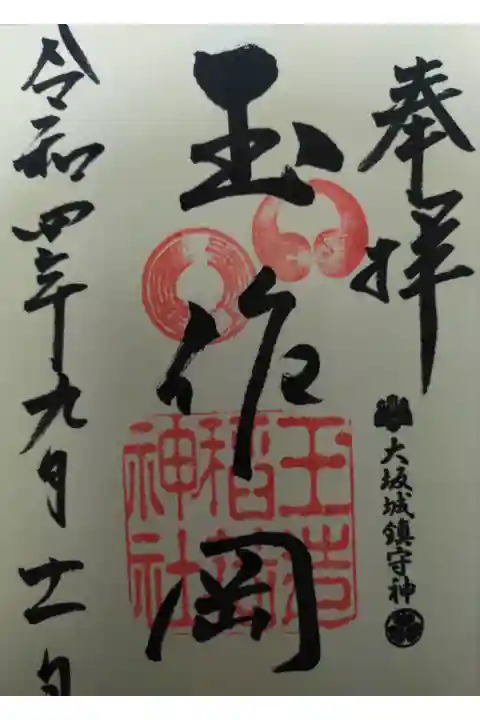 奉拝
大坂城鎮守神
玉作岡
玉造
稲荷
神社
令和四年九月十一日